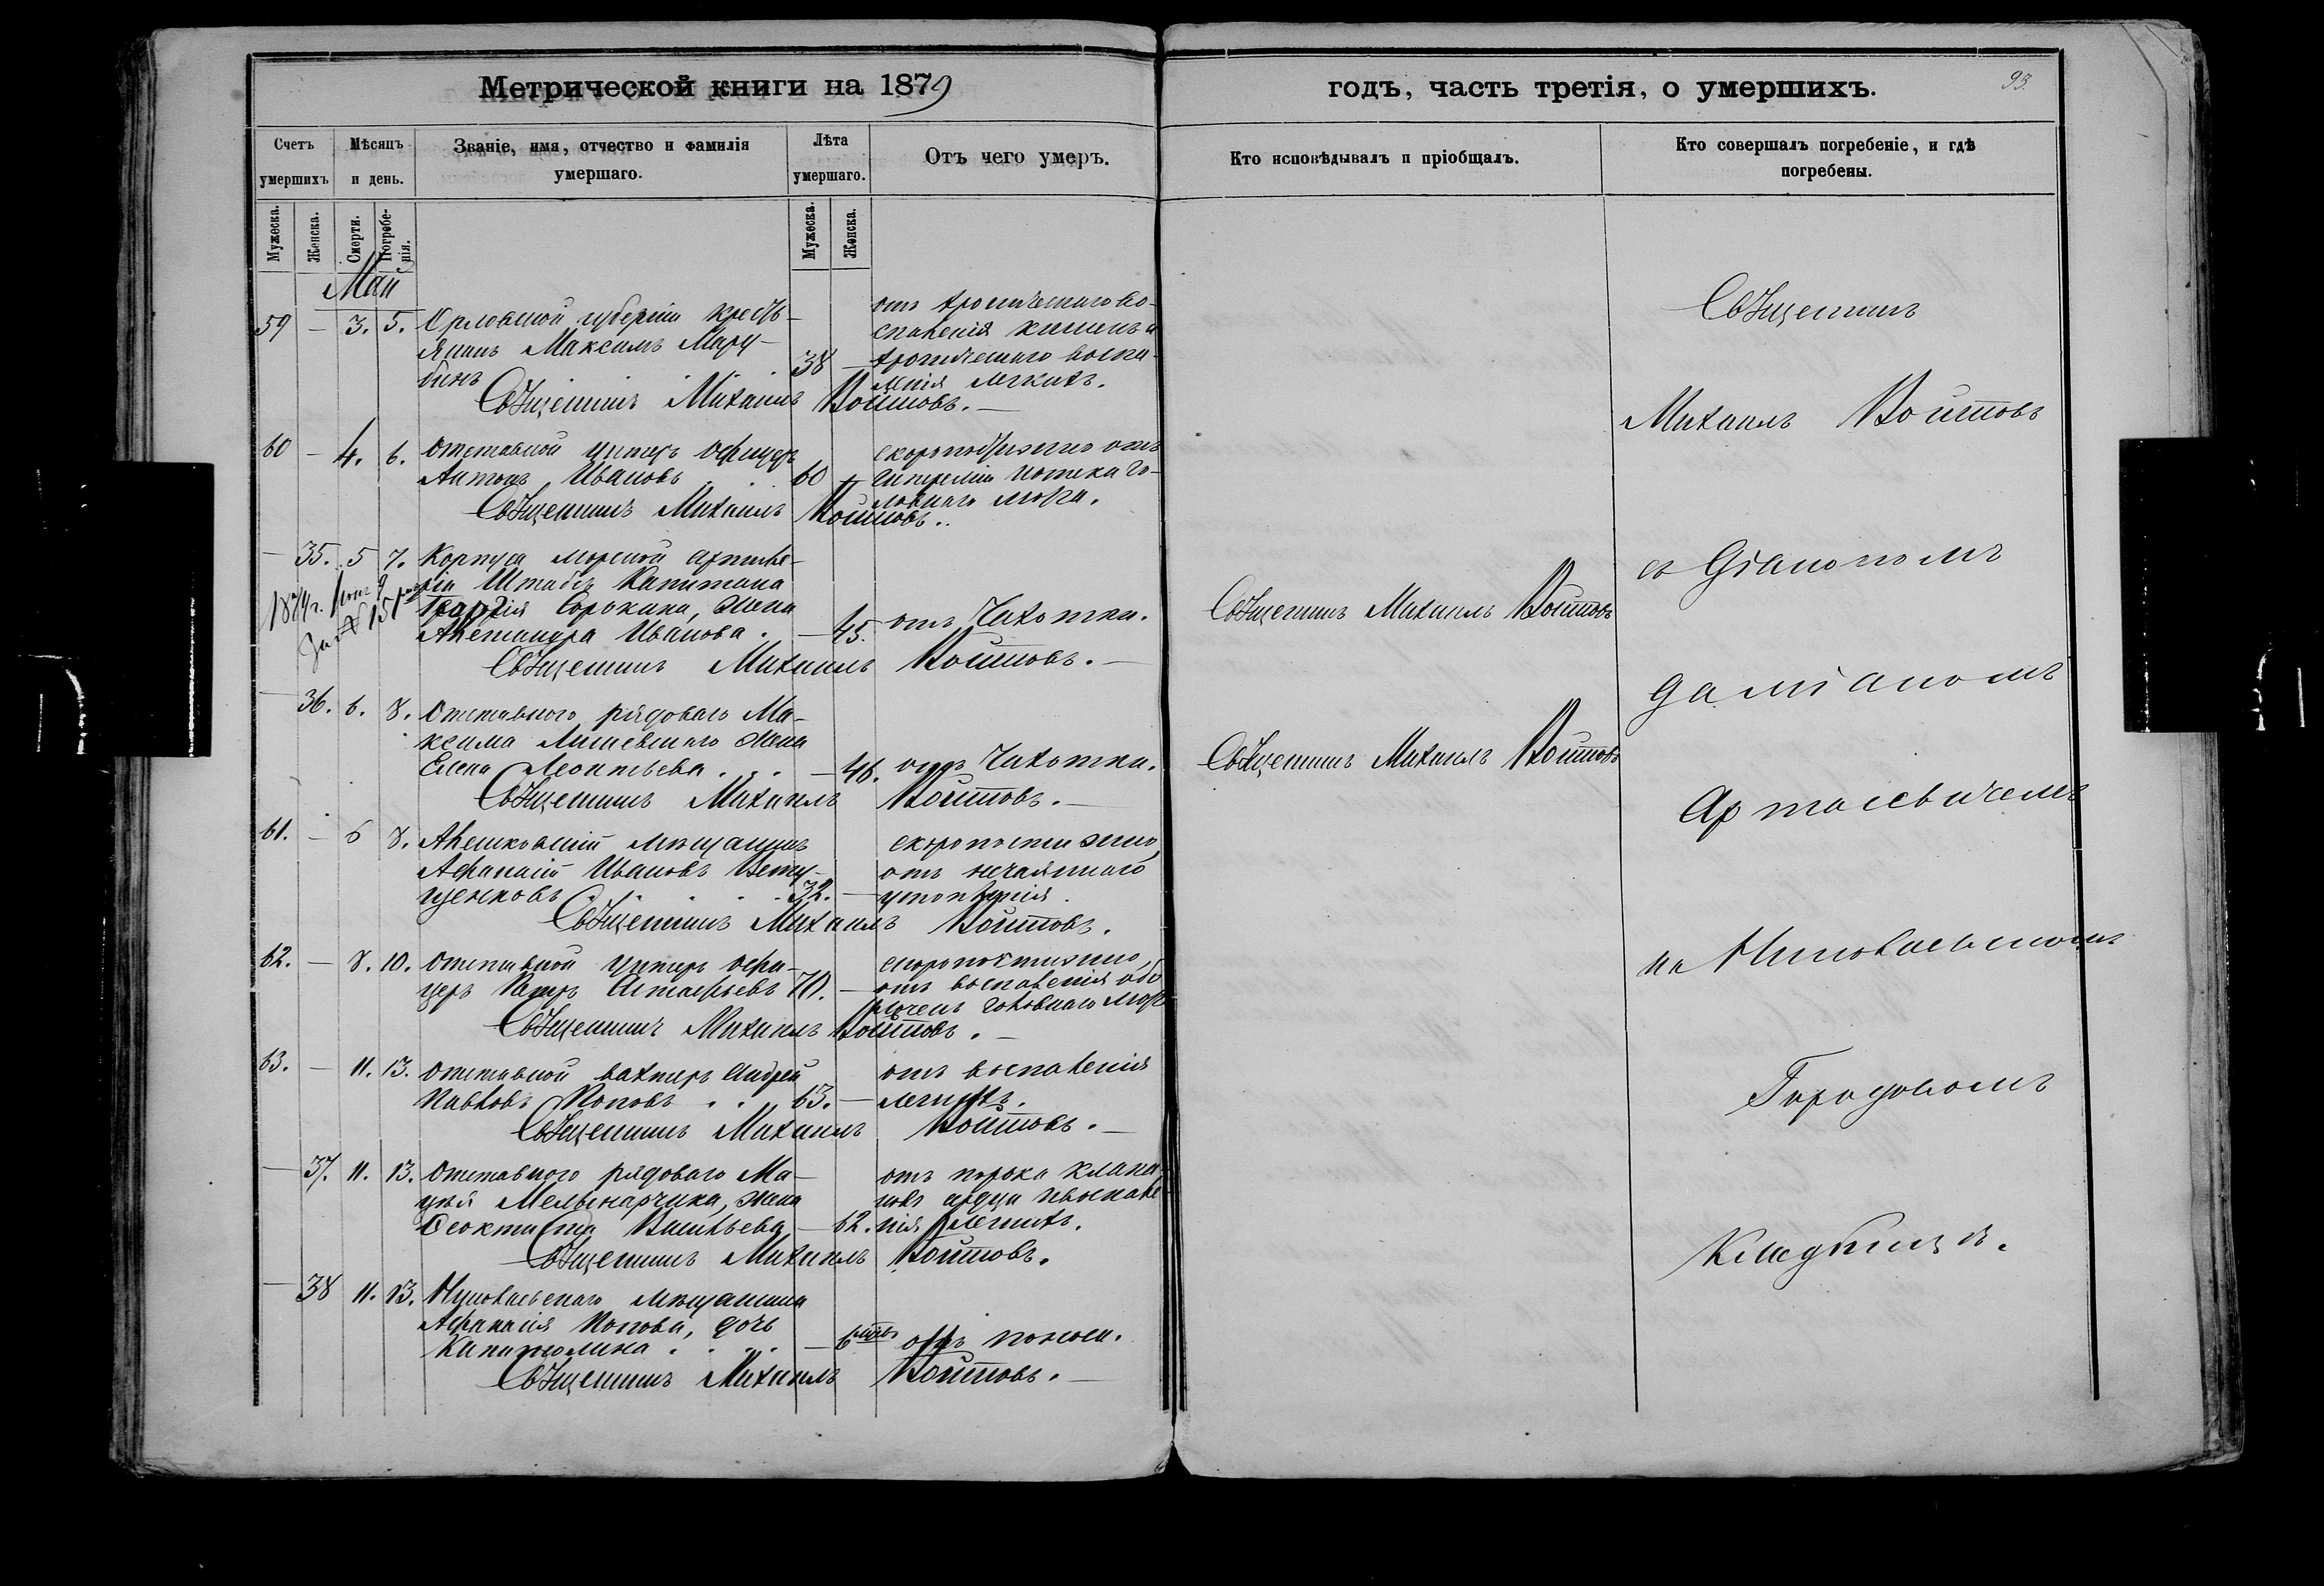 Метрической книги на 1879
годъ, часть третія, о умершихъ.
93.
Счетъ умершихъ
Мѣсяцъ и день.
Званіе, имя, отчество и фамилія умершаго.
Лѣта умершаго.
Отъ чего умеръ.
Кто исповѣдывалъ и пріобщалъ.
Кто совершалъ погребеніе, и гдѣ погребены.
Мужеска.
Женска.
Смерти.
Погребенія.
Мужеска.
Женска.
Май
59 — 3. 5. Орловской губерніи кресть-
янинъ Максимъ Мару-
бинъ . . . 38 —
отъ хроническаго во-
спаленія кишекъ и
хроническаго воспа-
ленія легкихъ.
Священникъ Михаилъ Войтовъ. —
60 — 4. 6. Отставной унтеръ офицеръ
Антонъ Ивановъ . . 60 —
скоропостижно отъ
головнаго мозга.
Священникъ Михаилъ Войтовъ.
— 35. 5 7. Корпуса морской артилле-
ріи Штабсъ Капитана
Георгія Сорокина, жена
Александра Иванова . — 45. отъ Чахотки.
Священникъ Михаилъ Войтовъ. —
Священникъ Михаилъ Войтовъ
— 36. 6. 8. Отставного рядоваго Ма-
ксима жена
Елена Леонтьева . . . — 46. отъ Чахотки.
Священникъ Михаилъ Войтовъ. —
Священникъ Михаилъ Войтовъ
61. — 6 8. Алешковскій мѣщанинъ
Афанасій Ивановъ
. . . 32. —
скоропостижно,
отъ нечаяннаго
утопленія.
Священникъ Михаилъ Войтовъ.
62. — 8. 10. Отставной унтеръ офи-
церъ Петръ Астафьевъ 70. —
скоропостижно,
отъ воспаленія обо-
лочекъ головнаго мозга
Священникъ Михаилъ Войтовъ. —
63. — 11. 13. Отставной вахтеръ Андрей
Павловъ Поповъ . . 63. —
отъ воспаленія
легкихъ.
Священникъ Михаилъ Войтовъ. —
— 37. 11. 13. Отставного рядоваго Ма-
цѣя Мельничарчика, жена
Феоктиста Васильева — 62.
отъ порока клапа-
новъ сердца и воспале-
нія легкихъ.
Священникъ Михаилъ Войтовъ.
— 38 11. 13. Николаевскаго мѣщанина
Афанасія Попова, дочь
Капитолина . . . — 6 отъ поноса.
Священникъ Михаилъ Войтовъ. —
Священникъ
Михаилъ Войтовъ
съ Діакономъ
Даміаномъ
Артасевичемъ
на Николаевскомъ
Городовомъ
Кладбищѣ.